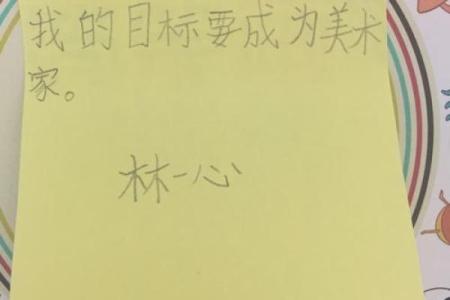 我的目标要成为美术
家。
林一心